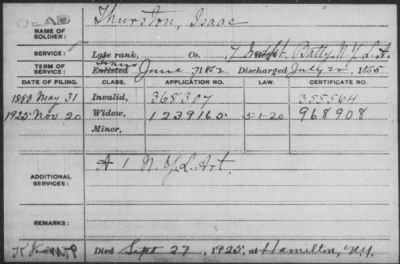 DEAD
NAME OF SOLDIER: Thurston, Isaac
SERVICE: Late rank, Co. 7 Batty. N.Y.L.A.
TERM OF SERVICE: Enlisted June 1862 Discharged July 22, 1865
DATE OF FILING. CLASS. APPLICATION NO. LAW. CERTIFICATE NO.
1880 May 31 Invalid, 368307 355564
1925 Nov. 20 Widow, 1239165 5-1-20 968908
Minor,
ADDITIONAL SERVICES: A 1 N.Y.L. Art.
REMARKS:
Died Sept 27, 1925, at Hamilton, N.Y.